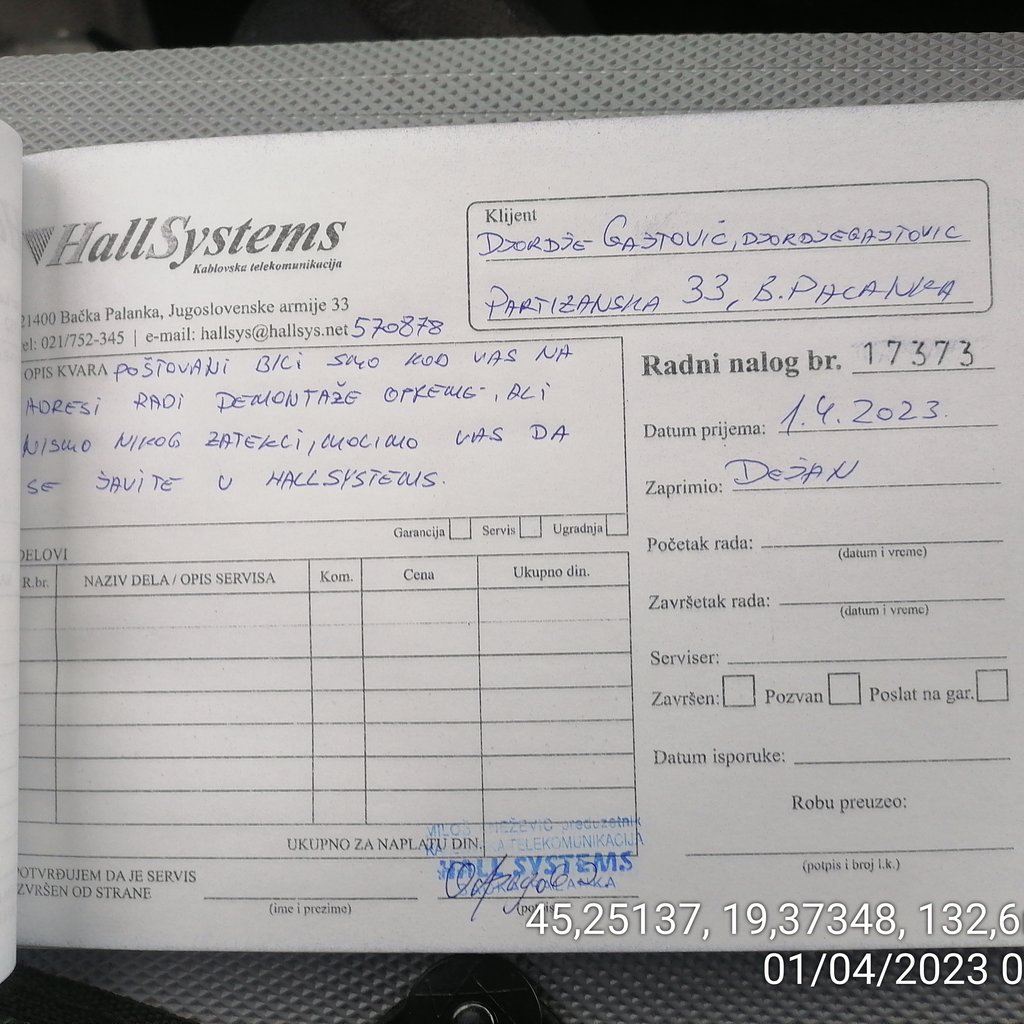 HallSystems
Kablovska telekomunikacija
21400 Bačka Palanka, Jugoslovenske armije 33
el: 021/752-345 | e-mail: hallsys@hallsys.net 570878
Klijent
DJORDJE GAJTOVIĆ, DJORDJEGAJTOVIC
PARTIZANSKA 33, B. PALANKA
OPIS KVARA POŠTOVANI BILI SMO KOD VAS NA
ADRESI RADI DEMONTAŽE OPREME, ALI
NISMO NIKOG ZATEKLI, MOLIMO VAS DA
SE JAVITE U HALLSYSTEMS.
Garancija Servis Ugradnja
Radni nalog br. 17373
Datum prijema: 1.4.2023.
Zaprimio: DEJAN
Početak rada:
(datum i vreme)
Završetak rada:
(datum i vreme)
Serviser:
Završen: Pozvan Poslat na gar.
Datum isporuke:
Robu preuzeo:
(potpis i broj l.k.)
DELOVI
R.br. NAZIV DELA / OPIS SERVISA Kom. Cena Ukupno din.
UKUPNO ZA NAPLATU DIN.
MILOŠ NEŽEVIĆ preduzetnik
TELEKOMUNIKACIJA
HALL SYSTEMS
PALANKA
POTVRĐUJEM DA JE SERVIS
IZVRŠEN OD STRANE
(ime i prezime)
(potpis
45,25137, 19,37348, 132,6
01/04/2023 0